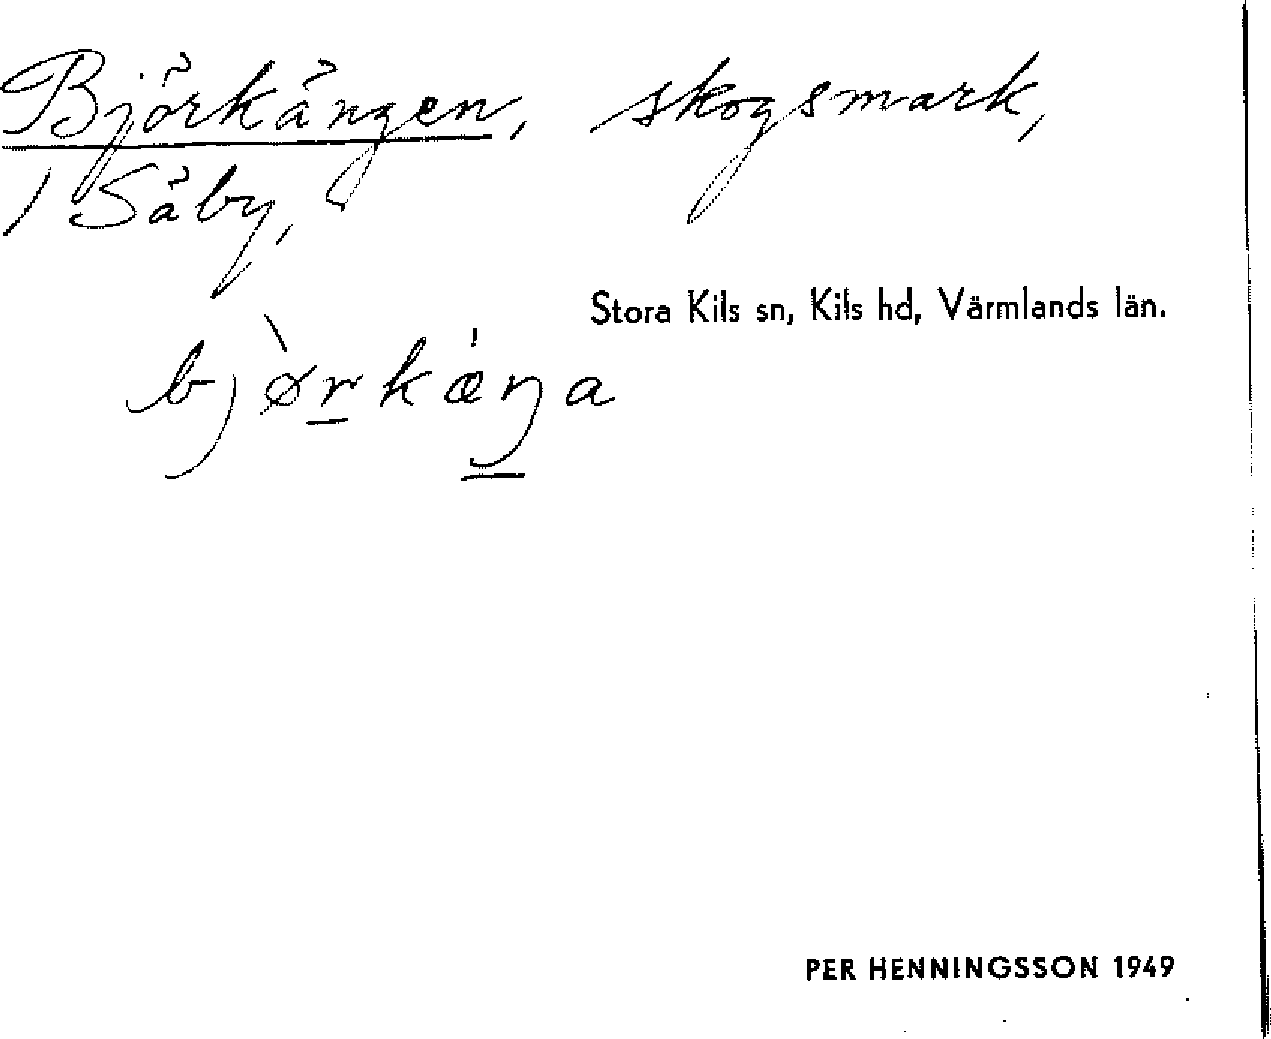 Björkängen, skogsmark,
/ Säby,
Stora Kils sn, Kils hd, Värmlands län.
bjø̀rkǽŋa
PER HENNINGSSON 1949